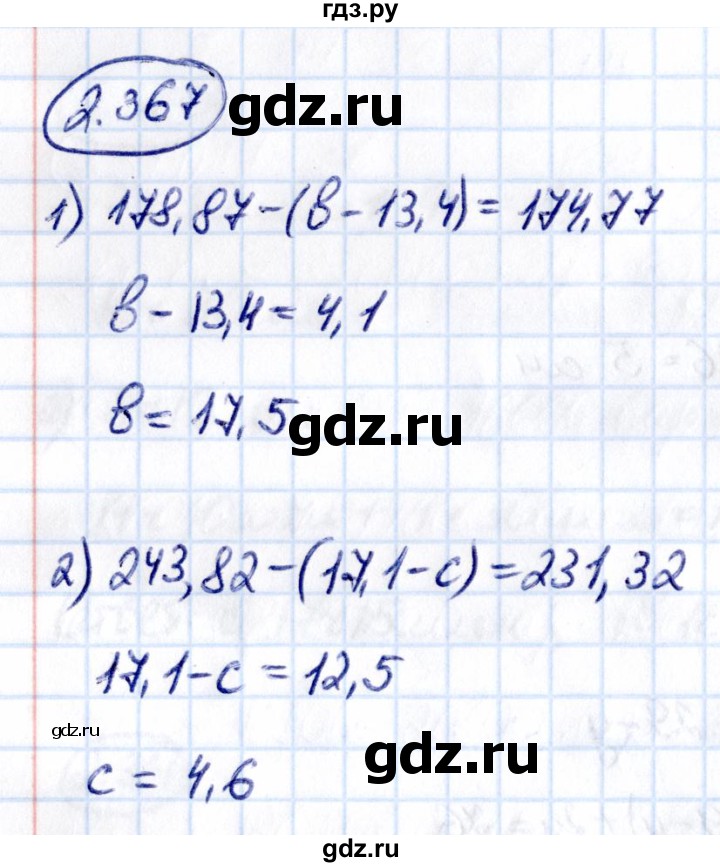 гдз.ру
2.367 gdz.ru
1) 178,87-(в-13,4)=174,77
в-13,4=4,1
в=17,5
gdz.ru
2) 243,82-(17,1-с)=231,32
17,1-с=12,5
gdz.ru
с=4,6
gdz.ru